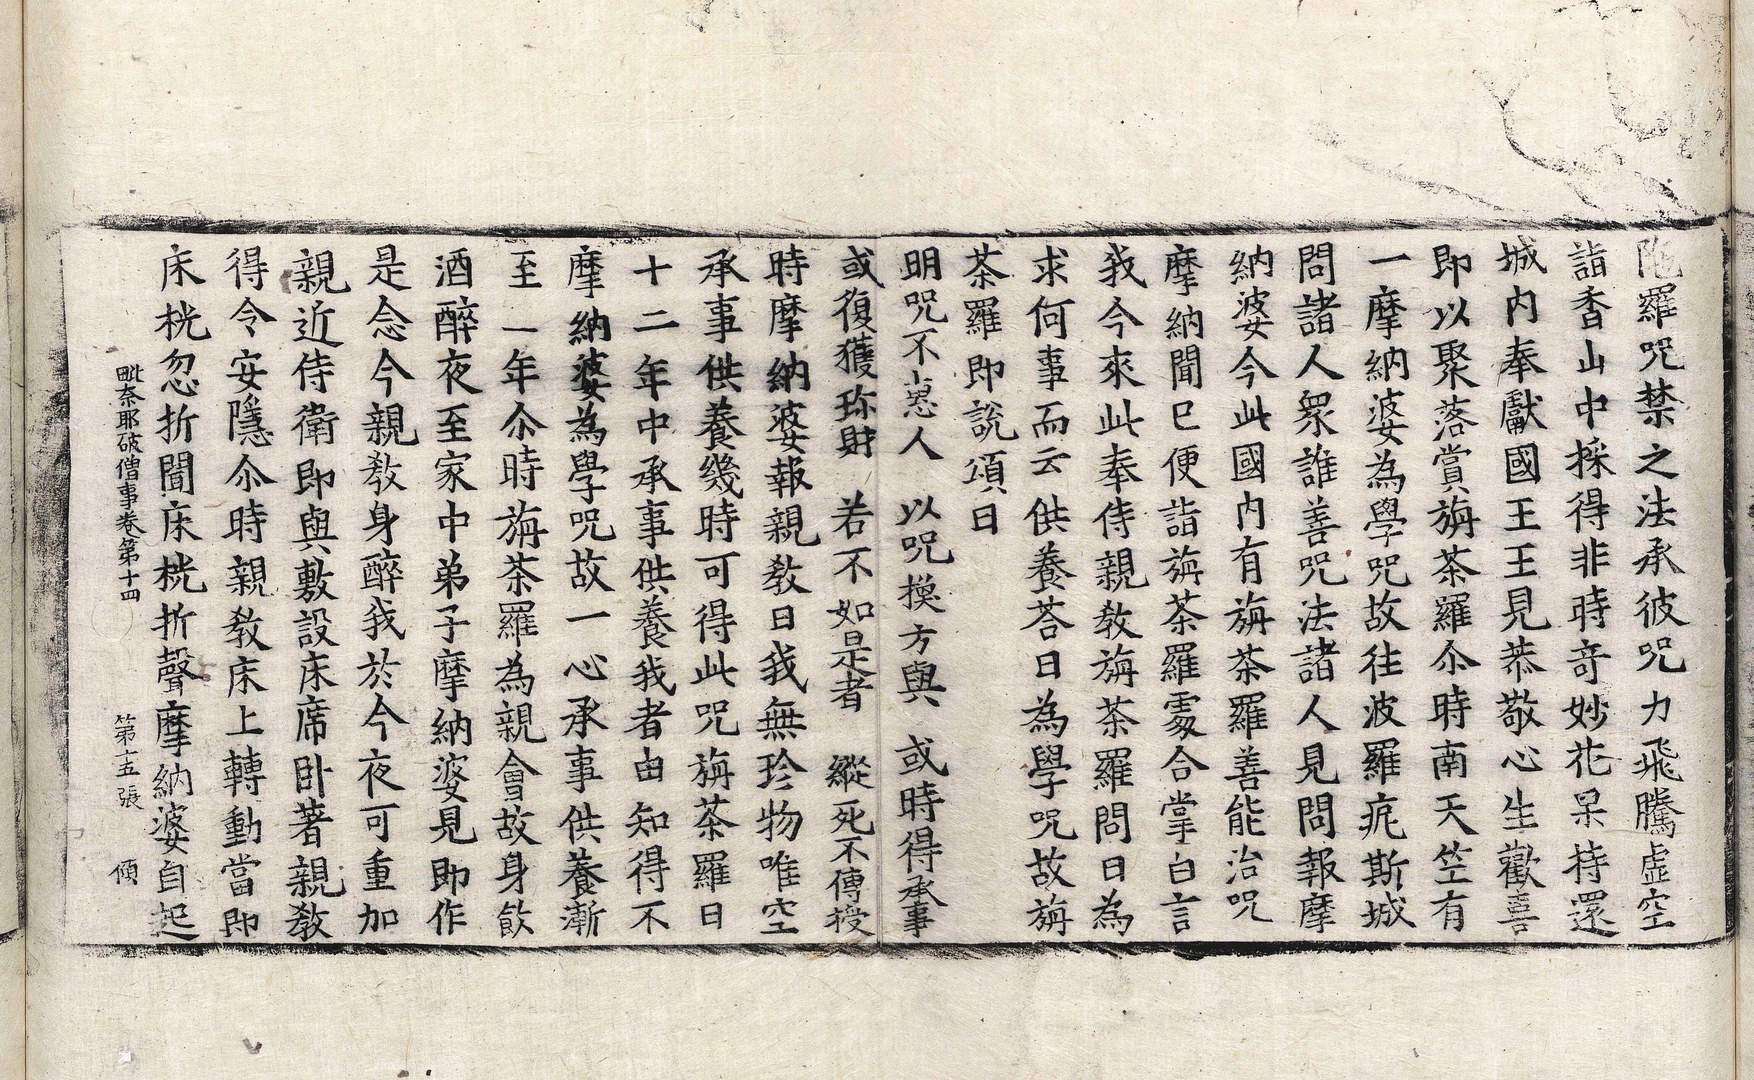 陁羅咒禁之法承彼咒力飛騰虛空
詣香山中採得非時竒妙花果持還
城內奉獻國王王見恭敬心生歡喜
即以聚落賞旃茶羅尒時南天笁有
一摩納婆為學咒故往波羅痆斯城
問諸人眾誰善咒法諸人見問報摩
納婆今此國內有旃茶羅善能治咒
摩納聞已便詣旃茶羅處合掌白言
我今來此奉侍親教旃茶羅問曰為
求何事而云供養荅曰為學咒故旃
茶羅即說頌曰
明咒不惠人　以咒換方與　或時得承事
或復獲珎財　若不如是者　縱死不傳授
時摩納婆報親教曰我無珍物唯空
承事供養幾時可得此咒旃茶羅曰
十二年中承事供養我者由知得不
摩納婆為學咒故一心承事供養漸
至一年尒時旃茶羅為親會故身飲
酒醉夜至家中弟子摩納婆見即作
是念今親教身醉我於今夜可重加
親近侍衛即與敷設床席卧著親教
得令安隱尒時親教床上轉動當即
床桄忽折聞床桄折聲摩納婆自起
毗奈耶破僧事卷第十四　第十五張　傾